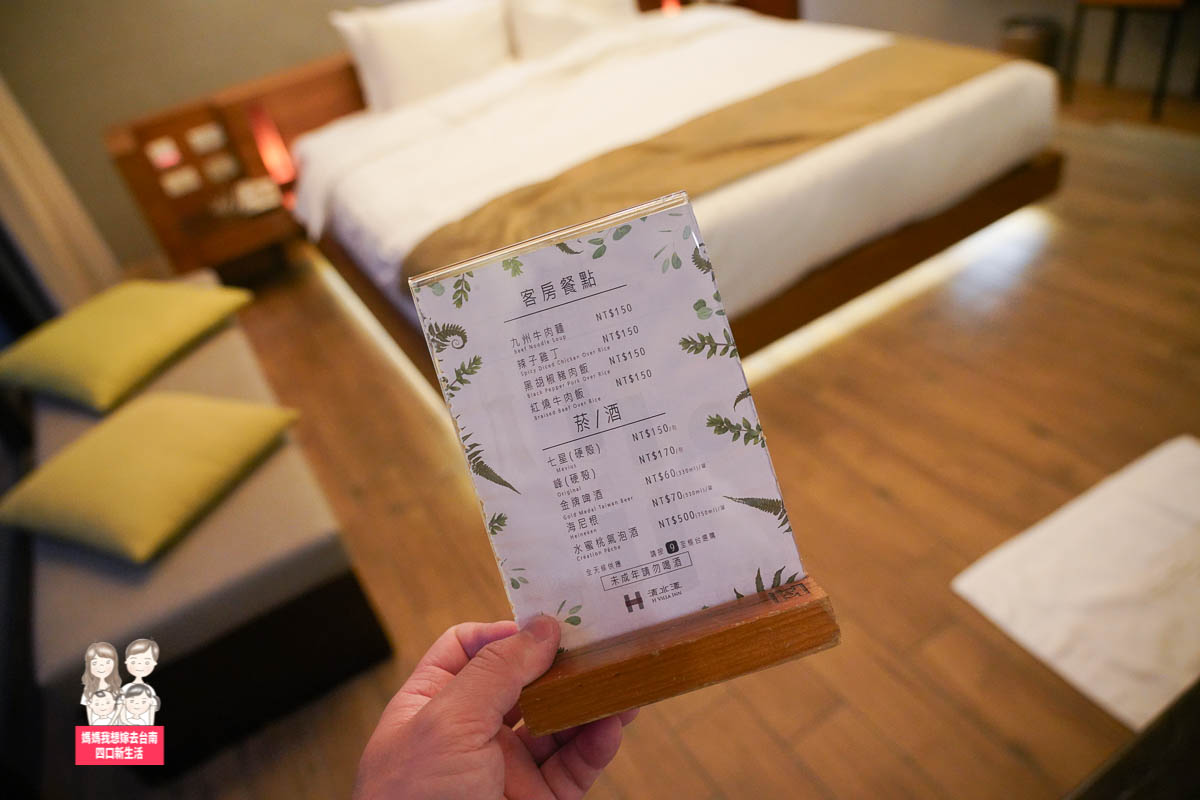 客房餐點
九州牛肉麵 NT$150
Beef Noodle Soup
辣子雞丁 NT$150
Spicy Diced Chicken Over Rice
黑胡椒豬肉飯 NT$150
Black Pepper Pork Over Rice
紅燒牛肉飯 NT$150
Braised Beef Over Rice
菸/酒
七星(硬殼) NT$150/包
Mevius
峰(硬殼) NT$170/包
Original
金牌啤酒 NT$60(330ml)/罐
Gold Medal Taiwan Beer
海尼根 NT$70(330ml)/罐
Heineken
水蜜桃氣泡酒 NT$500(750ml)/罐
Création Pêche
全天候供應 請按 9 至櫃台選購
未成年請勿喝酒
清水漾
H VILLA INN
媽媽我想嫁去台南
四口新生活